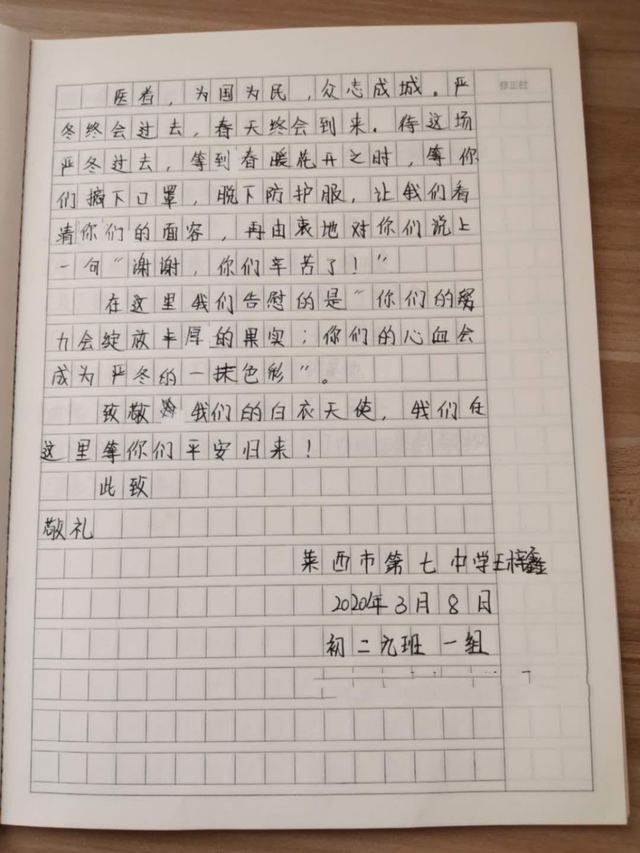 修正栏
医者，为国为民，众志成城。严
冬终会过去，春天终会到来。待这场
严冬过去，等到春暖花开之时，等你
们摘下口罩，脱下防护服，让我们看
清你们的面容，再由衷地对你们说上
一句“谢谢，你们辛苦了！”
在这里我们告慰的是“你们的努
力会绽放丰厚的果实；你们的心血会
成为严冬的一抹色彩”。
致敬 我们的白衣天使，我们在
这里等你们平安归来！
此致
敬礼
莱西市第七中学王梓鑫
2020年3月8日
初二九班一组